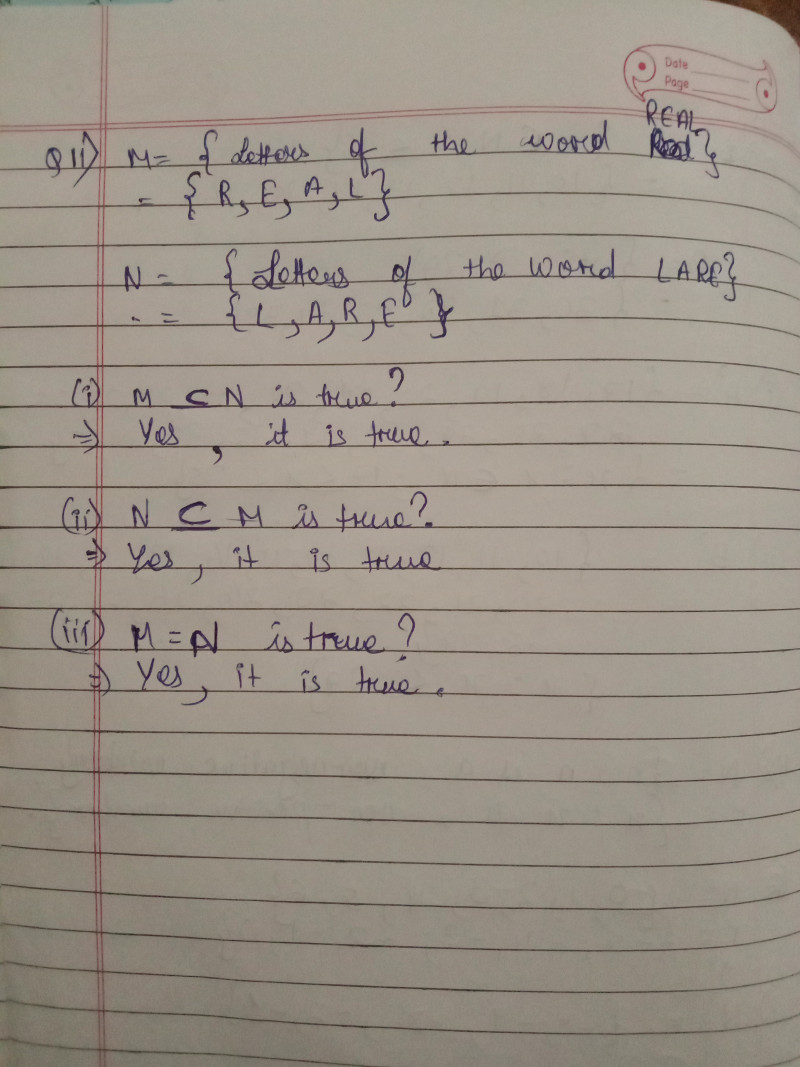 Date
Page
REAL
Q 11) M = { Letters of the word }
= { R, E, A, L }
N = { Letters of the word LARE}
. = { L, A, R, E }
(i) M ⊆ N is true?
⇒ Yes, it is true.
(ii) N ⊆ M is true?.
⇒ Yes, it is true
(iii) M = N is true?
⇒ Yes, it is true.